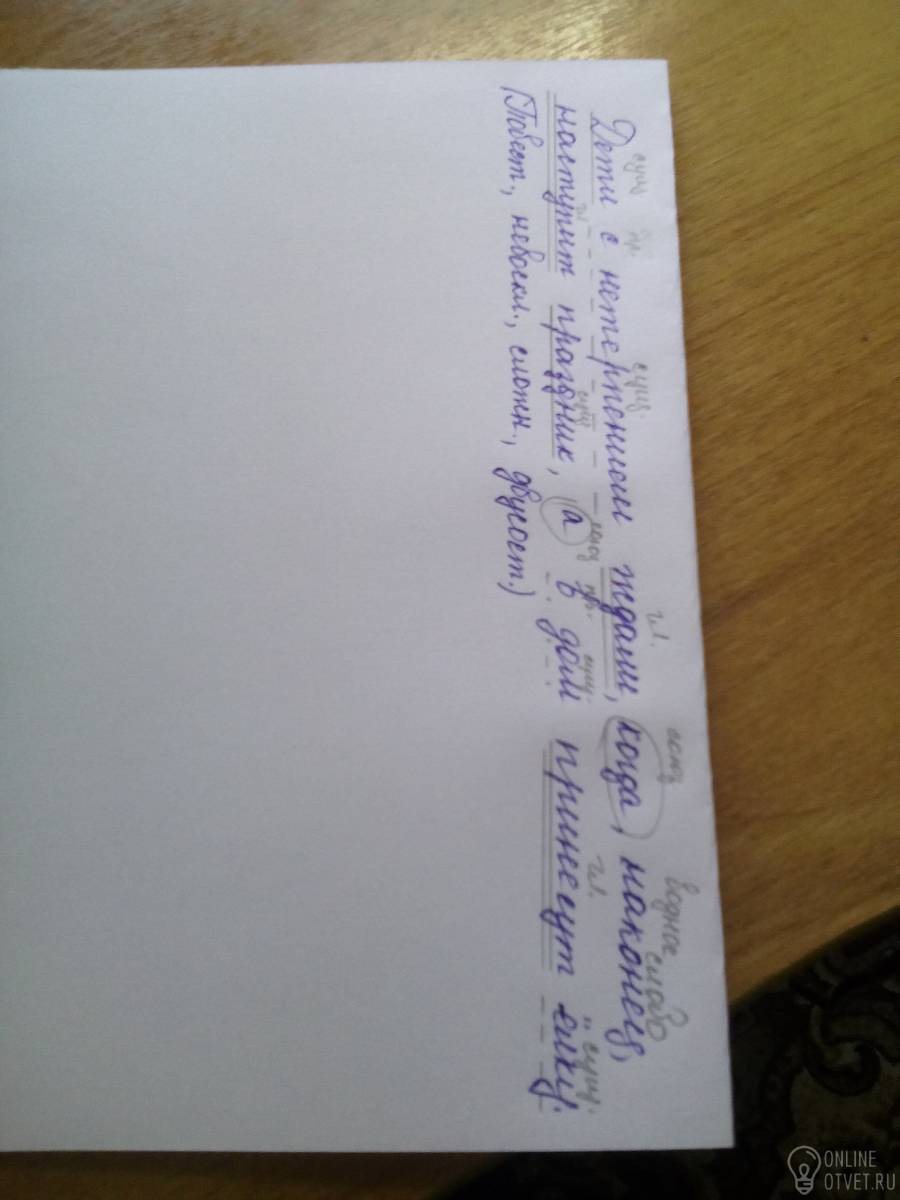 сущ пр. сущ. гл. союз водное слово
Дети с нетерпением ждали, когда, наконец,
гл сущ союз пр. сущ. гл. сущ.
наступит праздник, а в дом принесут ёлку.
(Повест., невоскл., сложн., двусост.)
ONLINE
OTVET.RU